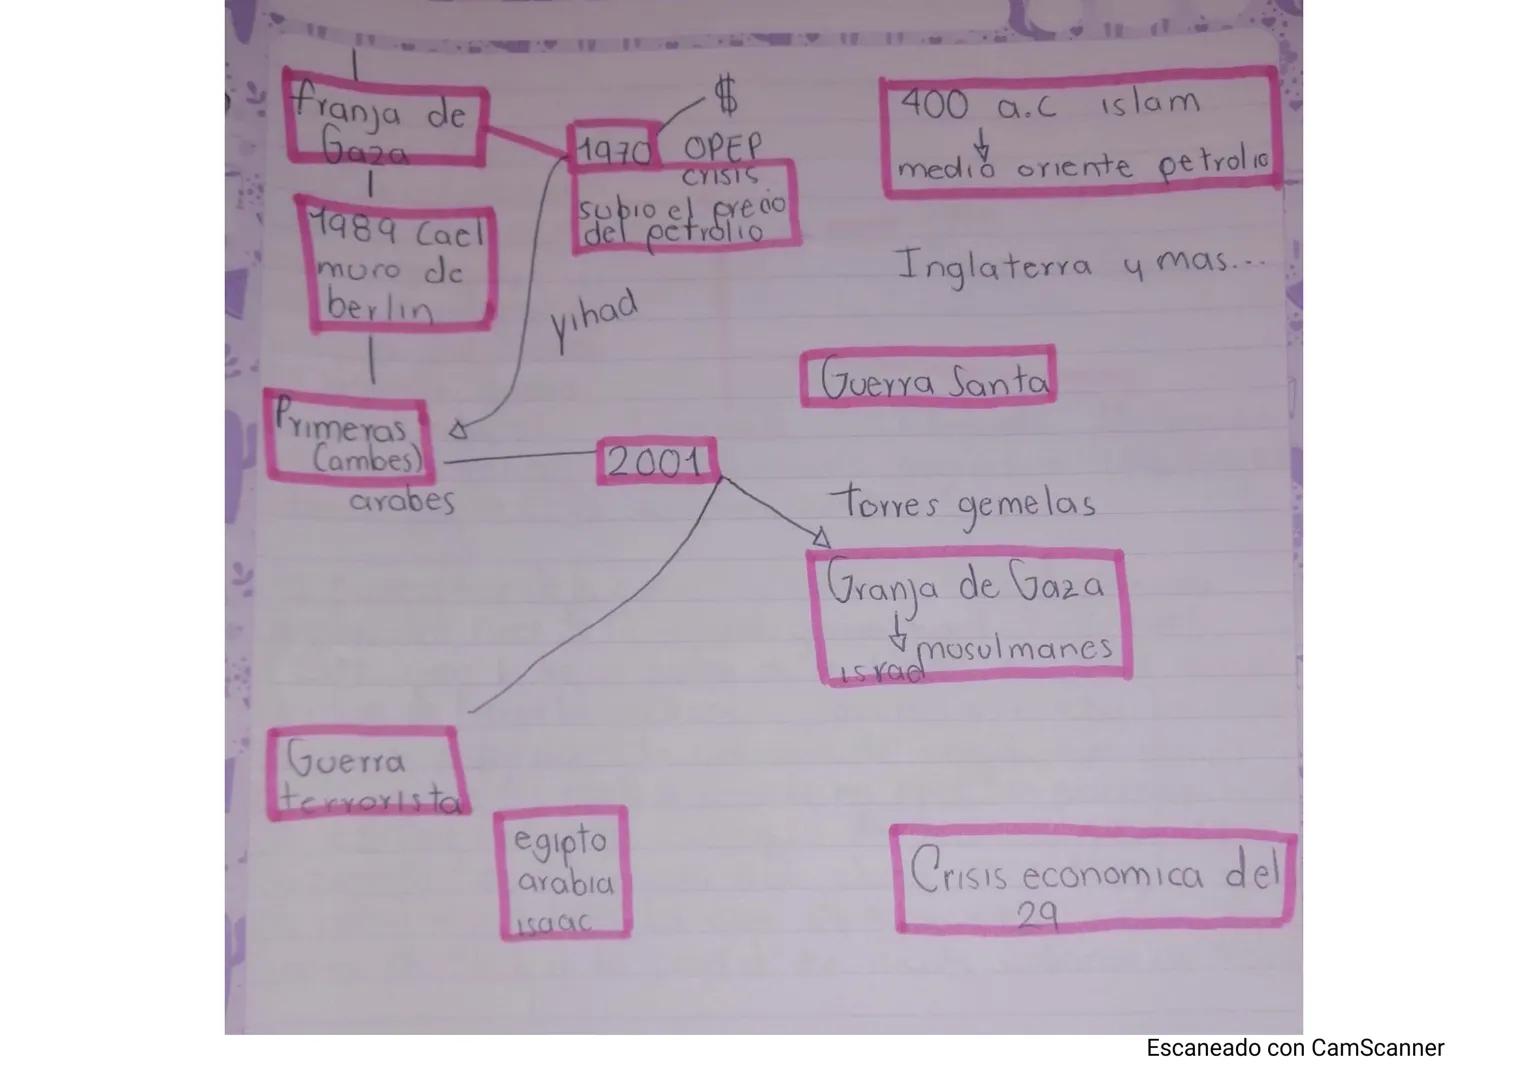 franja de
Gaza
1989 Cael
muro de
berlin
Primeras
(ambes)
arabes
$
1970 OPEP
crisis
subio el precio
del petrolio
yihad
2001
400 a.c islam
medio oriente petrolio
Inglaterra y mas...
Guerra Santa
Torres gemelas
Granja de Gaza
musulmanes
israel
Guerra
terrorista
egipto
arabia
isaac
Crisis economica del
29
Escaneado con CamScanner